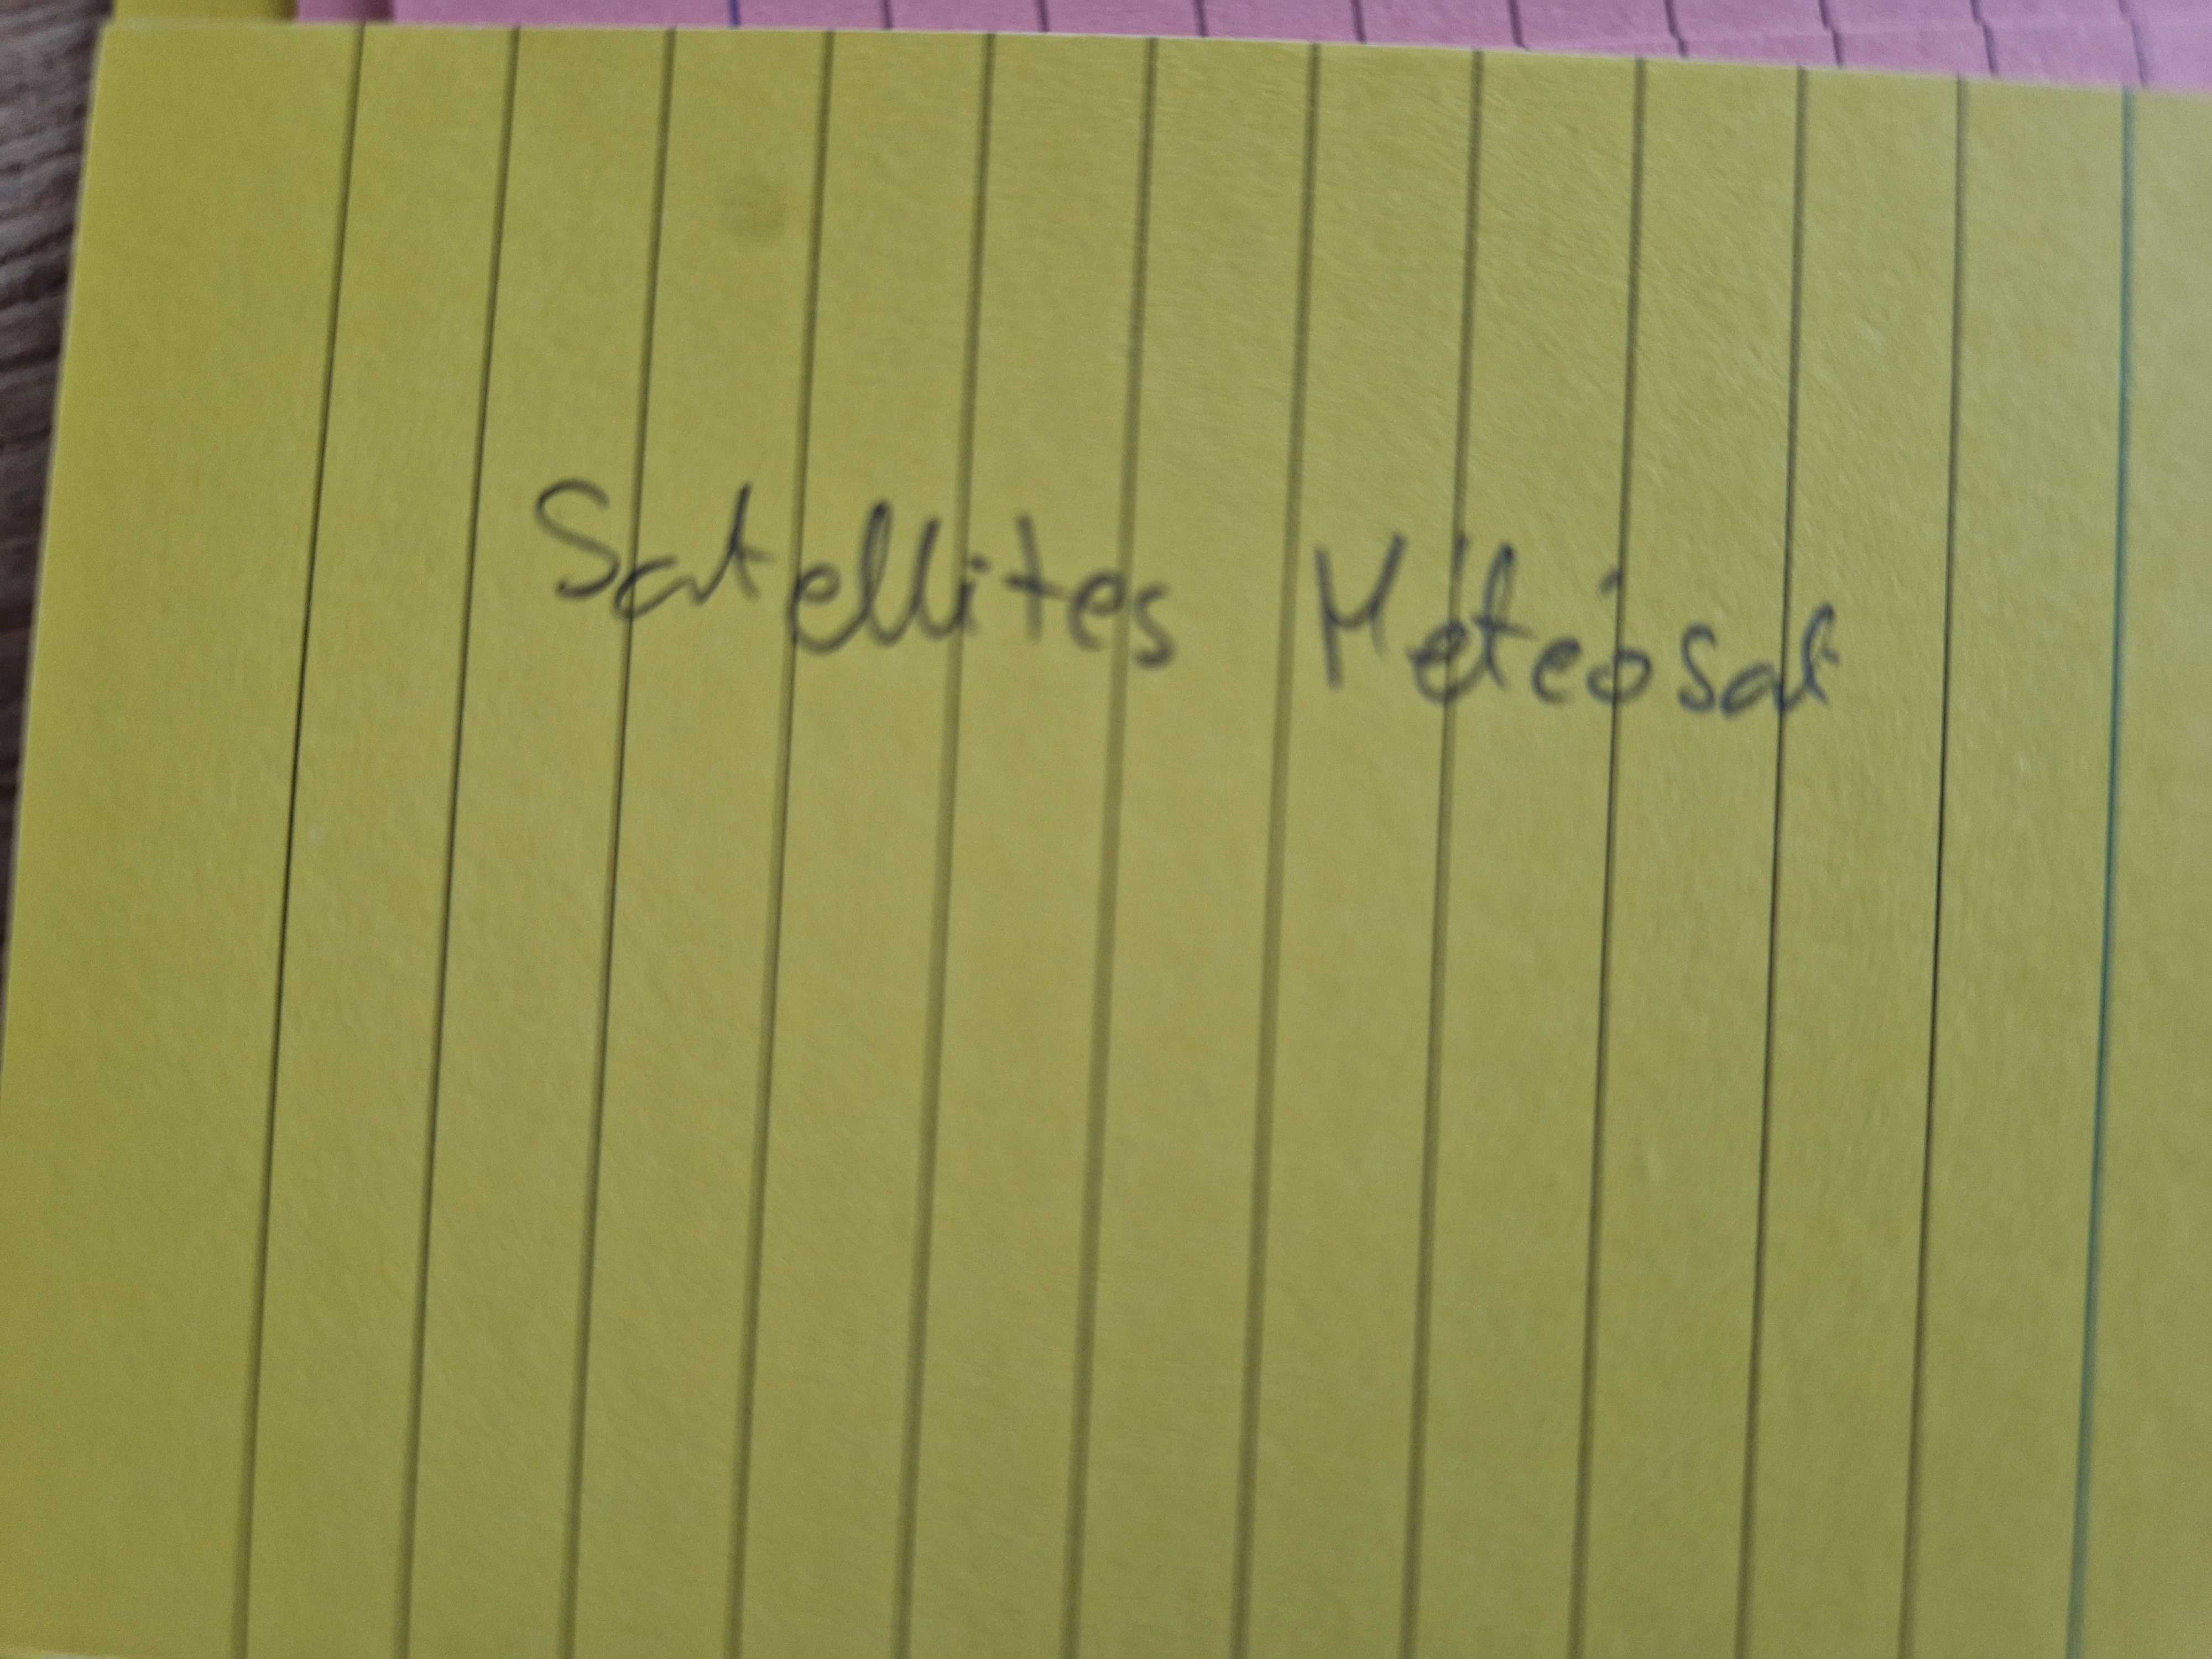 Satellites Météosat